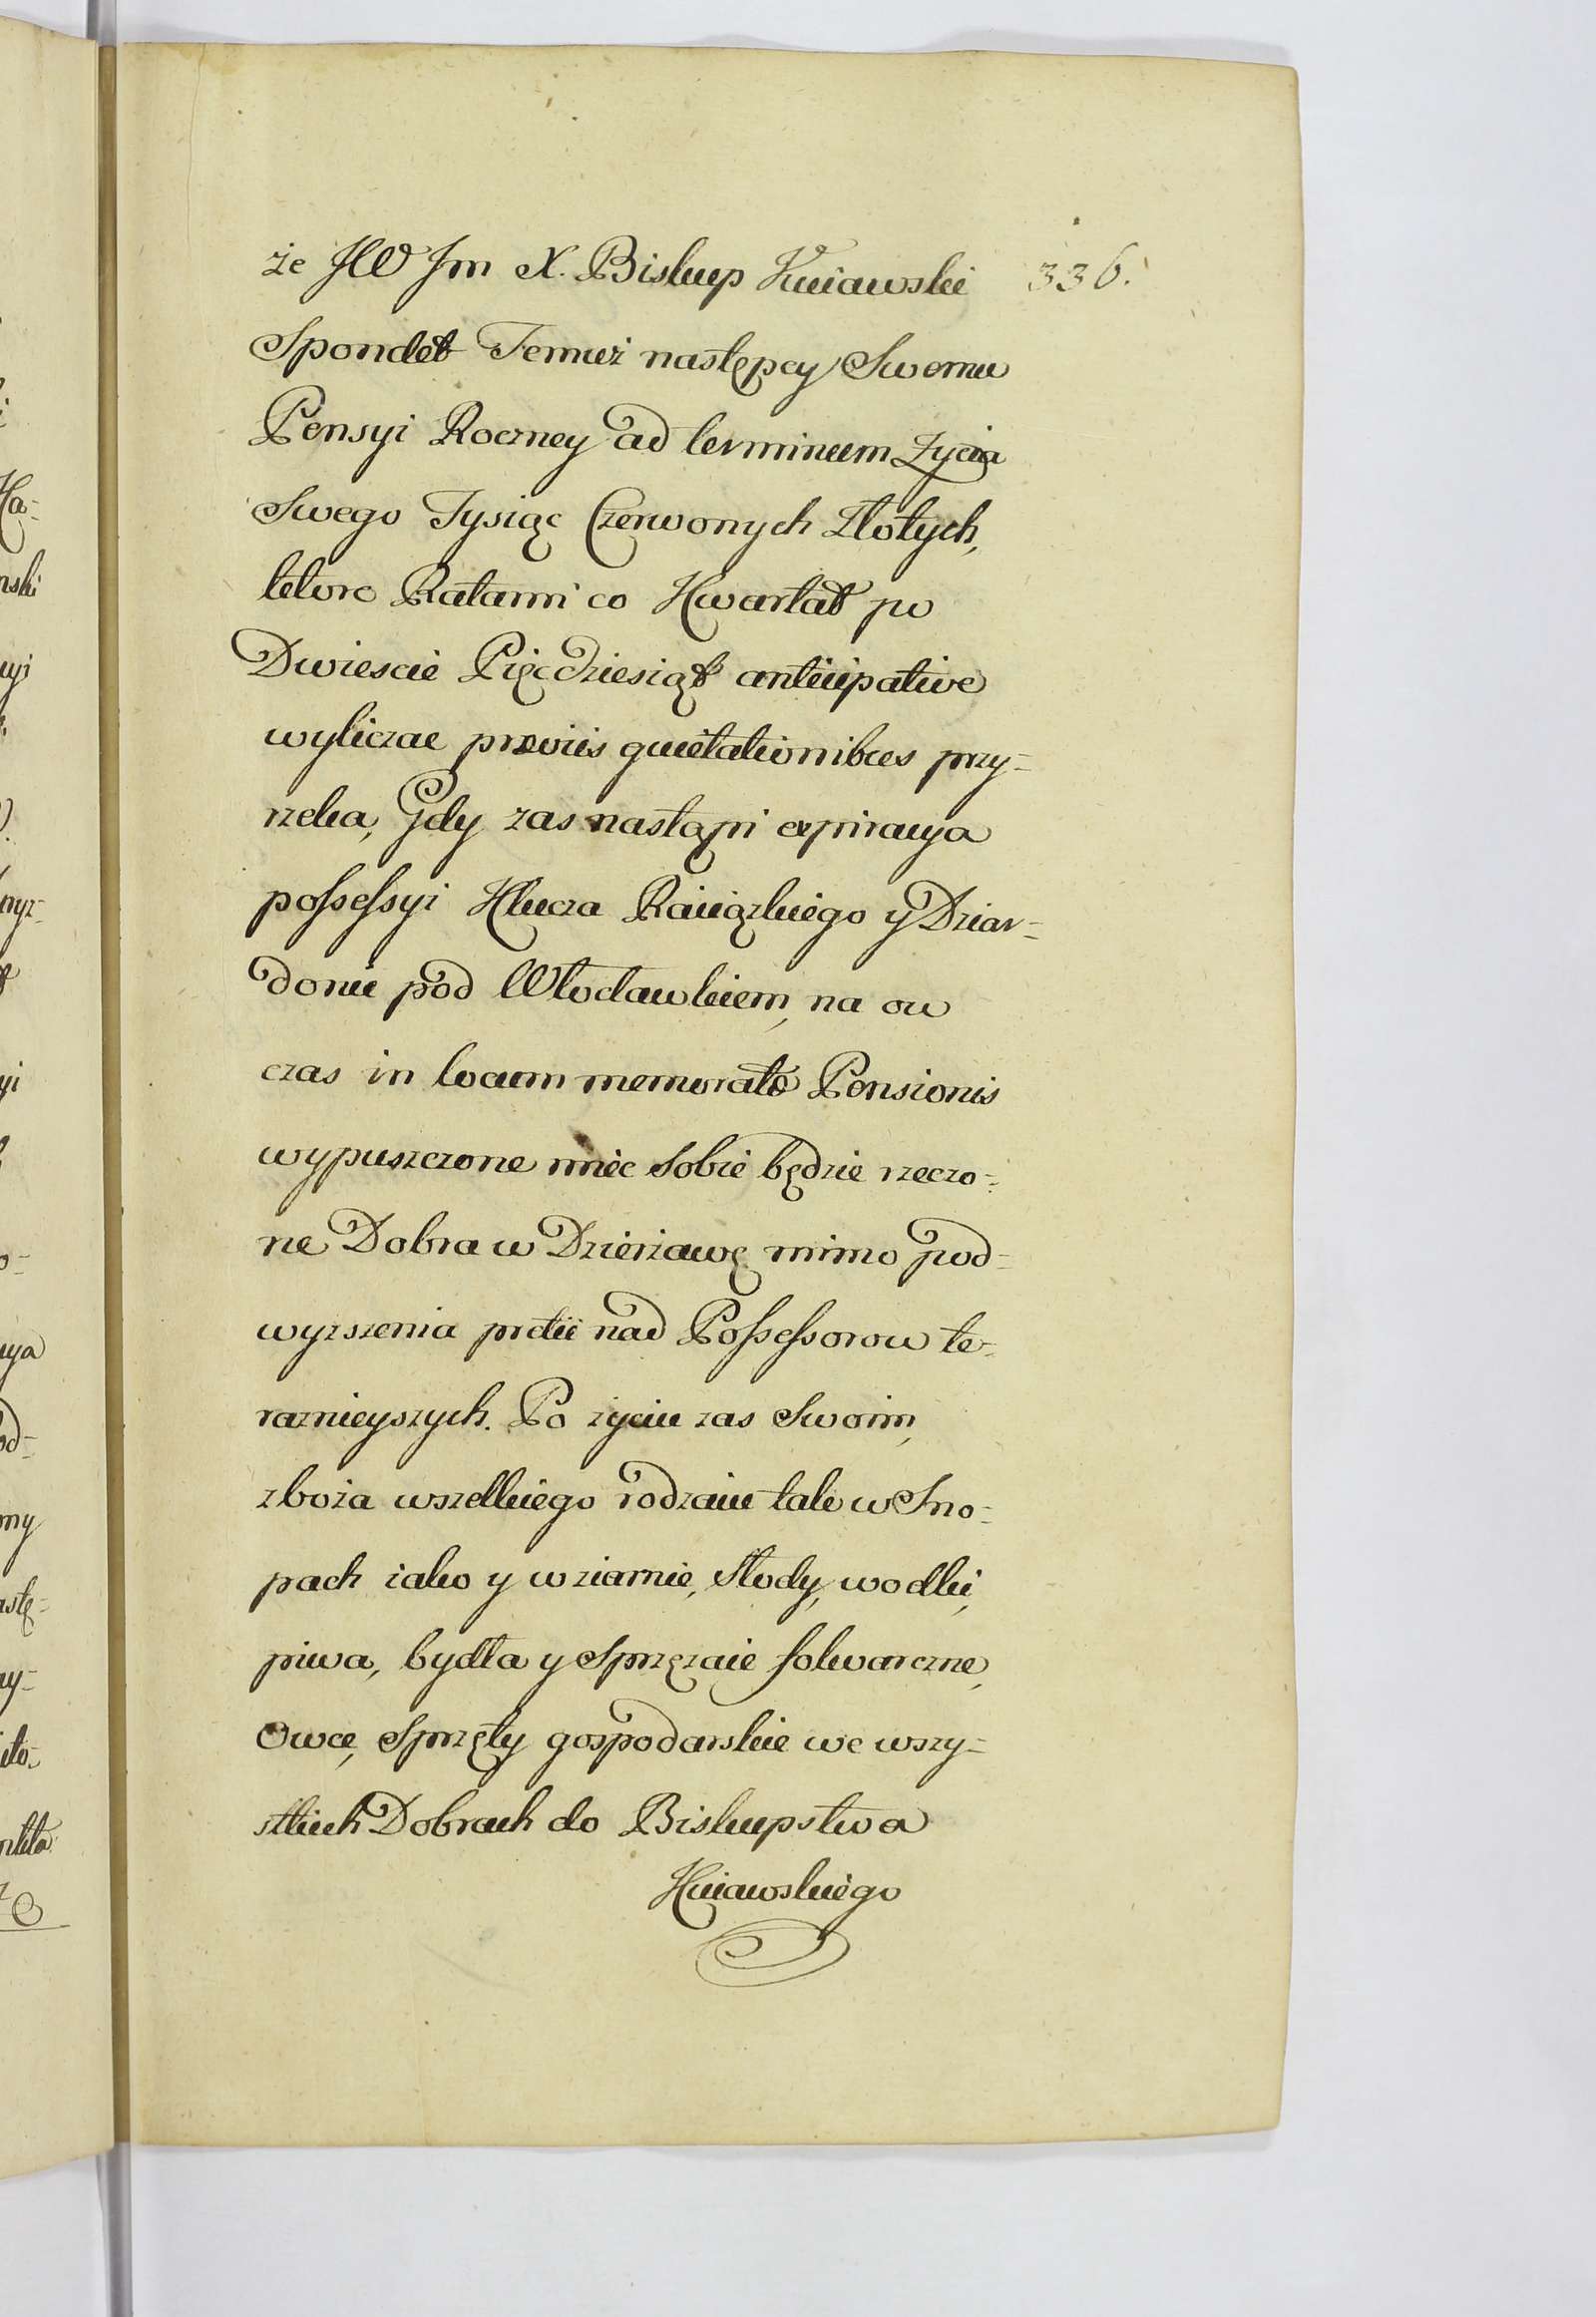 że JW Jm X. Biskup Kuiawski 336.
Spondet Temuż następcy Swemu
Pensyi Roczney ad terminum Życia
Swego Tysiąc Czerwonych Złotych,
ktore Ratami co Kwartał po
Dwiescie Pięcdziesiąt anticipative
wyliczac præviis quietationibus przy=
rzeka, Gdy zas nastąpi expiracya
possessyi Klucza Raiązkiego y Dziar=
donic pod Włocławkiem, na ow
czas in locum memoratæ Pensionis
wypuszczone miec Sobie będzie rzeczo=
ne Dobra w Dzierzawę mimo pod=
wyzszenia pretii nad Possessorow te=
raznieyszych. Po zyciu zas Swoim,
zboża wszelkiego rodzaiu tak w Sno=
pach iako y w ziarnie, Słody, wodki,
piwa, bydła y Sprzęzaie folwarczne,
Owce, Sprzęty gospodarskie we wszy=
stkich Dobrach do Biskupstwa
Kuiawskiego